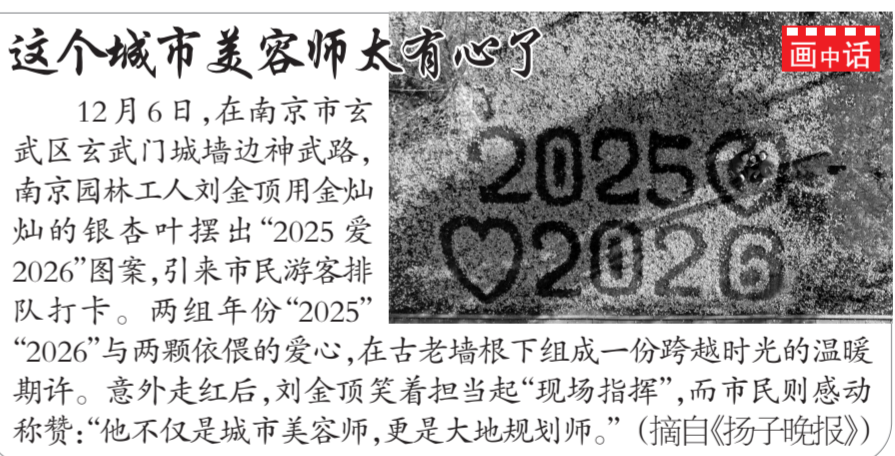 这个城市美容师太有心了
画中话
12月6日,在南京市玄
武区玄武门城墙边神武路,
南京园林工人刘金顶用金灿
灿的银杏叶摆出“2025 爱
2026”图案,引来市民游客排
队打卡。两组年份“2025”
“2026”与两颗依偎的爱心,在古老墙根下组成一份跨越时光的温暖
期许。意外走红后,刘金顶笑着担当起“现场指挥”,而市民则感动
称赞:“他不仅是城市美容师,更是大地规划师。”(摘自《扬子晚报》)
2025
2026